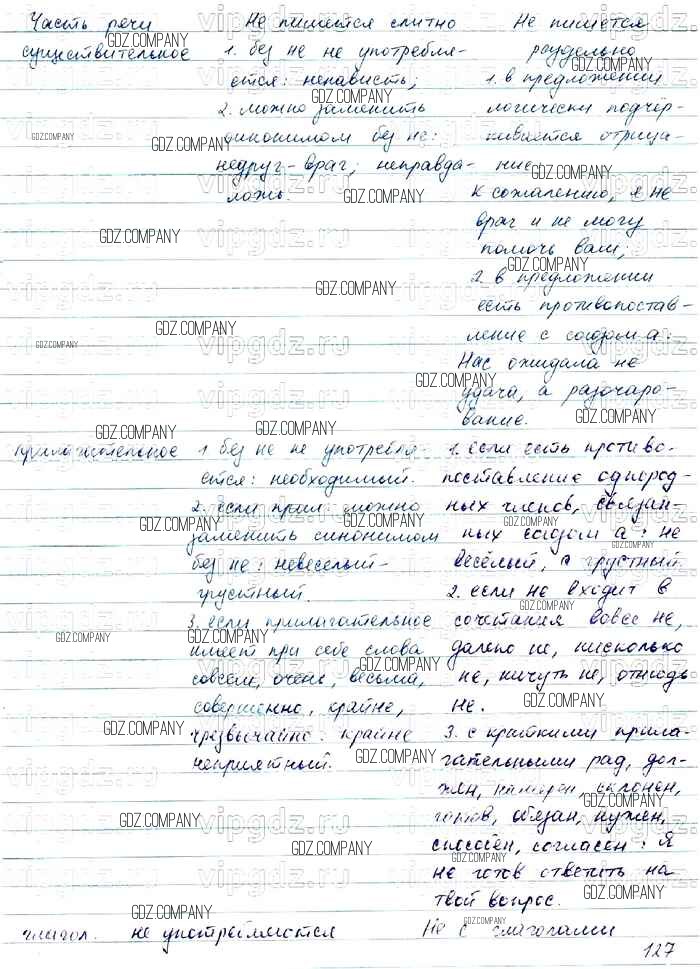 Часть речи Не пишется слитно Не пишется
существительное 1. без не не употребля- раздельно
ется: ненависть; 1. в предложении
2. можно заменить логически подчёр-
синонимом без не: кивается отрица-
недруг - враг; неправда - ние
ложь. К сожалению, я не
враг и не могу
помочь вам;
2. в предложении
есть противопостав-
ление с союзом а:
Нас ожидала не
удача, а разочаро-
вание.
прилагательное 1 без не не употребля- 1. если есть противо-
ется: необходимый. поставление однород-
2. если прил. можно ных членов, связан-
заменить синонимом ных союзом а: не
без не: невеселый - весёлый, а грустный
грустный. 2. если не входит в
3. если прилагательное сочетания вовсе не,
имеет при себе слова далеко не, нисколько
совсем, очень, весьма, не, ничуть не, отнюдь
совершенно, крайне, не.
чрезвычайно: крайне 3. с краткими прила-
неприятный. гательными рад, дол-
жен, намерен, склонен,
готов, обязан, нужен,
способен, согласен: Я
не готов ответить на
твой вопрос.
глагол. не употребляются Не с глаголами
127
GDZ.COMPANY
vipgdz.ru